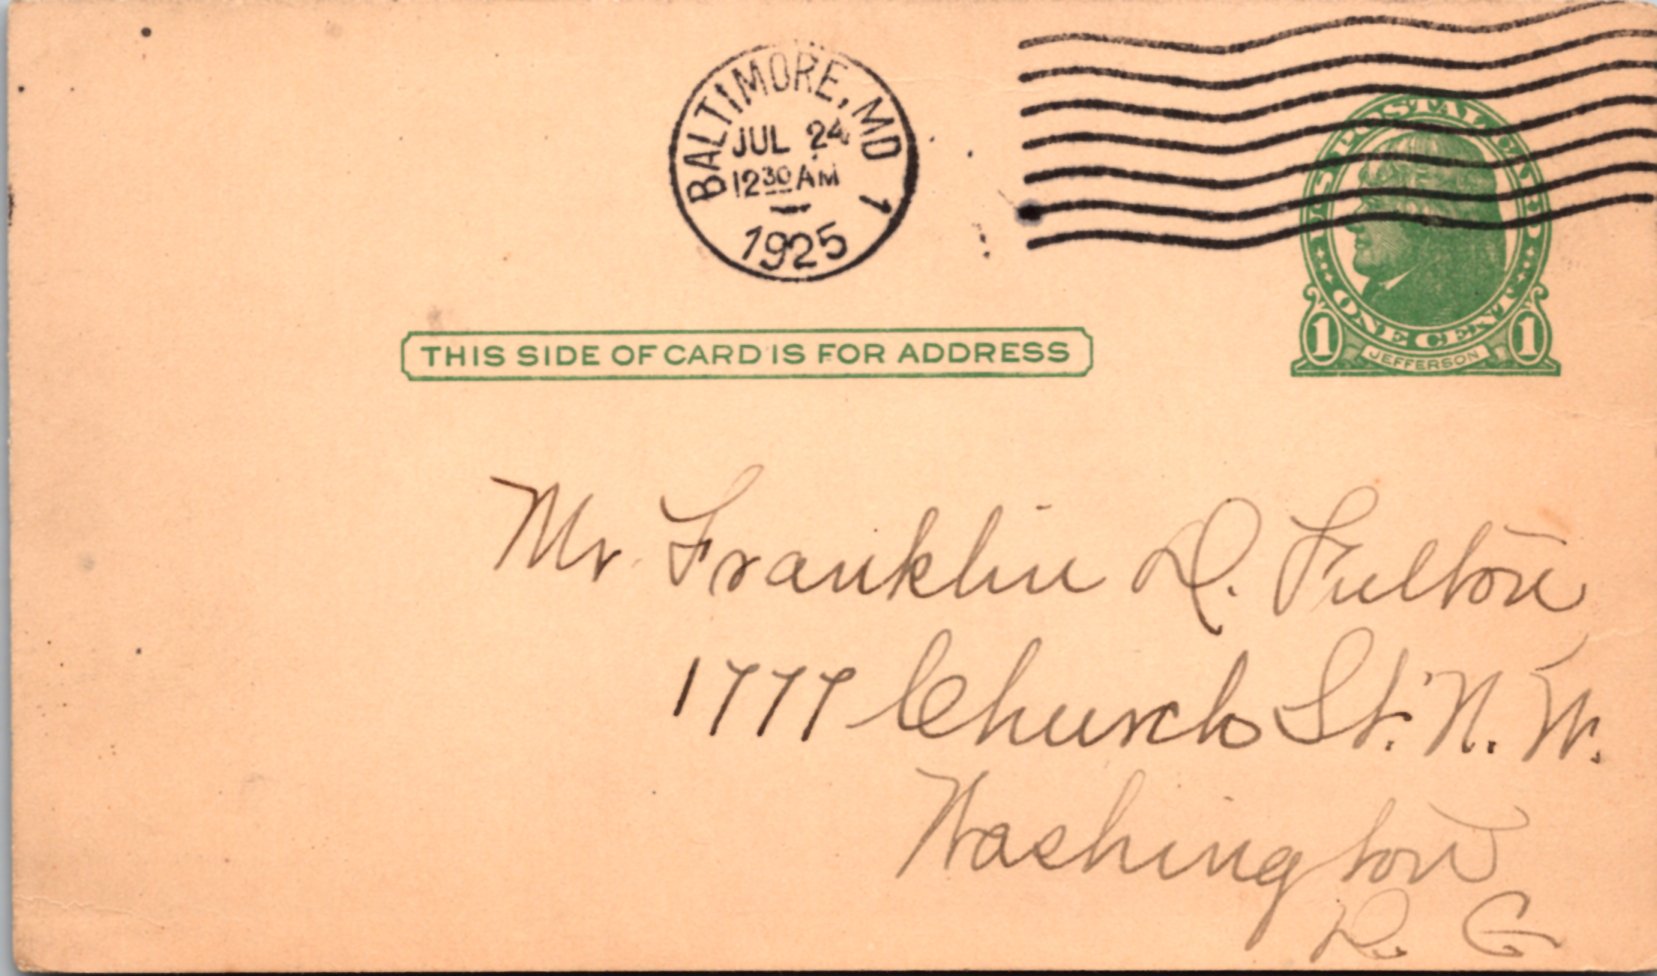 BALTIMORE, MD 1
JUL 24
12 30 AM
1925
U·S·POSTAL CARD
ONE CENT
1 JEFFERSON 1
THIS SIDE OF CARD IS FOR ADDRESS
Mr. Franklin D. Fulton
1777 Church St. N. W.
Washington
D. C